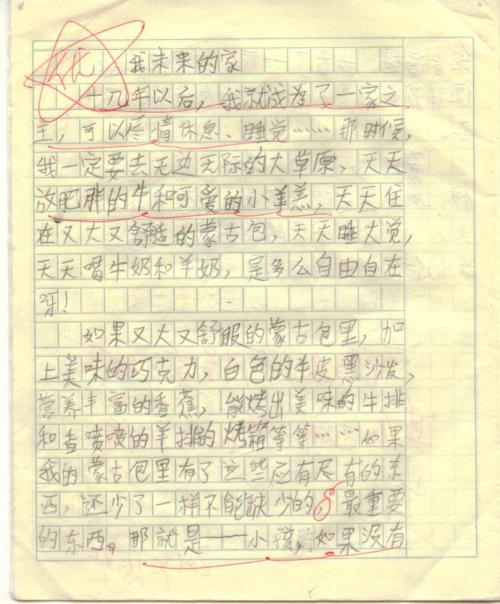 优
我未来的家
十几年以后，我就成为了一家之
主，可以尽情休息、睡觉……那时候，
我一定要去无边无际的大草原，天天
放肥胖的牛和可爱的小羊羔，天天住
在又大又舒适的蒙古包，天天睡大觉，
天天喝牛奶和羊奶，是多么自由自在
呀！
如果又大又舒服的蒙古包里，加
上美味的巧克力，白色的牛皮沙发，
营养丰富的香蕉，能烤出美味的牛排
和香喷喷的羊排的烤箱等等……如果
我的蒙古包里有了这些应有尽有的东
西，还少了一样不能缺少的，最重要
的东西。那就是——小孩，如果没有